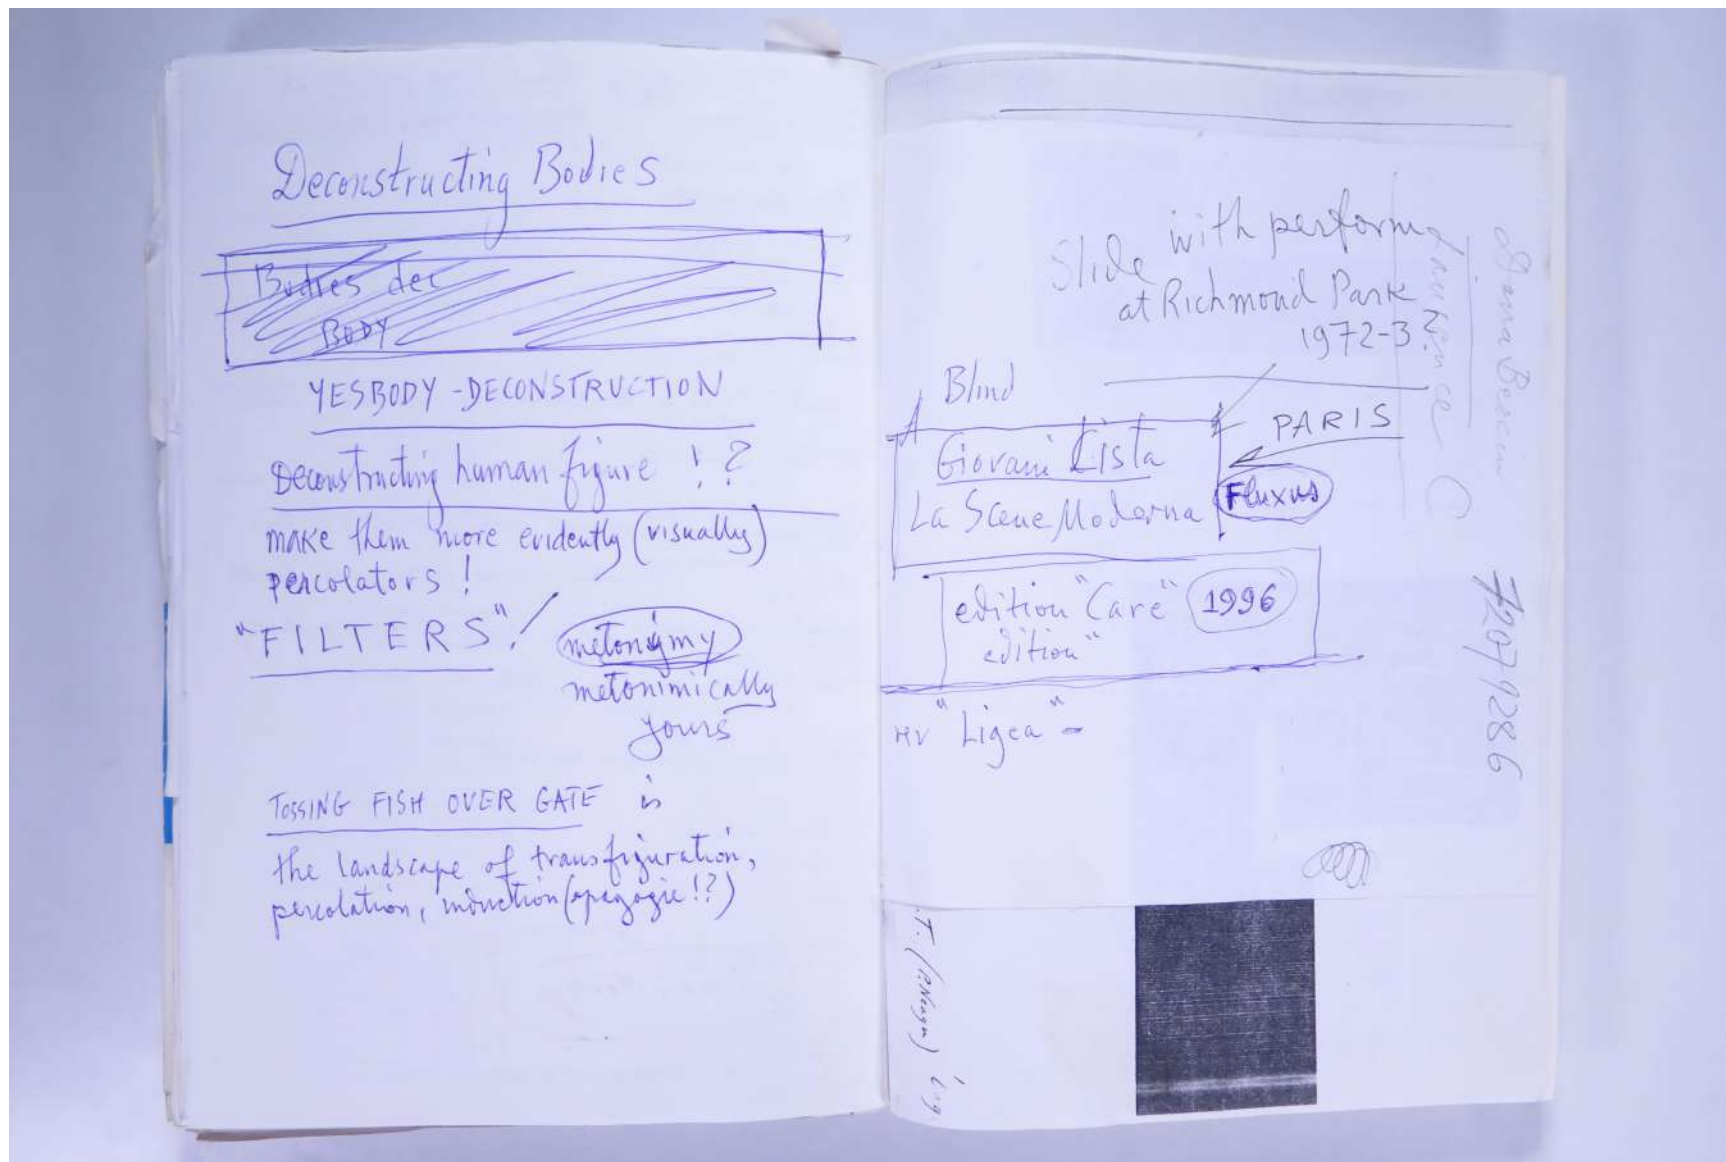 Deconstructing Bodies
Bodies dec
BODY
YESBODY-DECONSTRUCTION
Deconstructing human figure ! ?
make them more evidently (visually)
percolators !
"FILTERS" !
metonimy
metonimically
yours
TOSSING FISH OVER GATE is
the landscape of transfiguration,
percolation, induction (apagogie!?)
Slide with perform
at Richmond Park
1972-3?
Blind
PARIS
Giovani Lista
La Scene Moderna
Fluxus
edition "Care" 1996
edition"
"Ligea" -
72079286
.T. (P.Neagu)